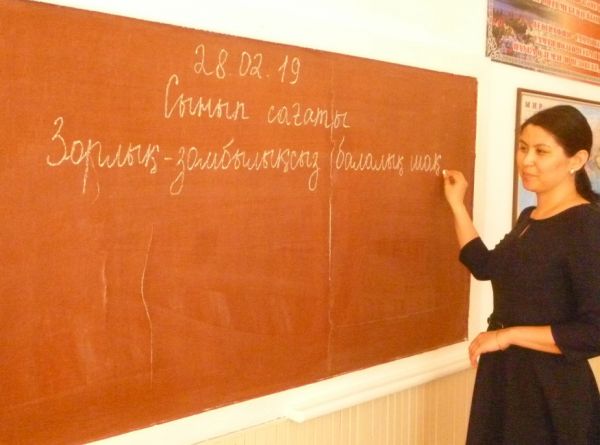 28.02.19
Сынып сағаты
Зорлық-зомбылықсыз балалық шақ
МИР